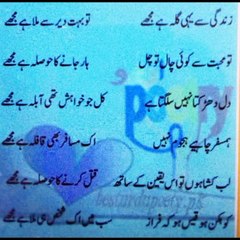 زندگی سے یہی گلہ ہے مجھے
تو بہت دیر سے ملا ہے مجھے
تو محبت سے کوئی چال تو چل
ہار جانے کا حوصلہ ہے مجھے
دل دھڑکتا نہیں سلگتا ہے
کل جو خواہش تھی آبلہ ہے مجھے
ہمسفر چاہیے ہجوم نہیں
اک مسافر بھی قافلہ ہے مجھے
لب کشا ہوں تو اس یقین کے ساتھ
قتل ہونے کا حوصلہ ہے مجھے
کوہکن ہو کہ قیس ہو کہ فراز
سب میں اک شخص ہی ملا ہے مجھے